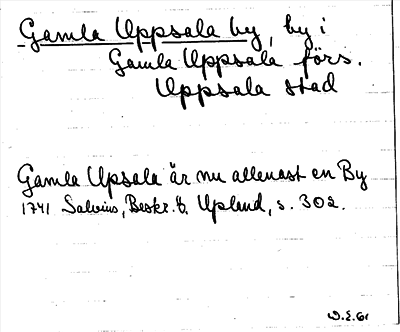 Gamla Uppsala by, by i
Gamla Uppsala förs.
Uppsala stad
Gamla Upsala är nu allenast en By
1741 Salvius, Beskr. ö. Upland, s. 302.
D.E. 61